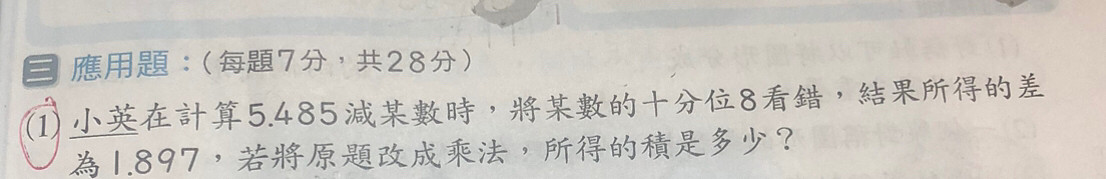 三 應用題：(每題7分，共28分)
(1) 小英在計算5.485減某數時，將某數的十分位8看錯，結果所得的差
為1.897，若將原題改成乘法，所得的積是多少？